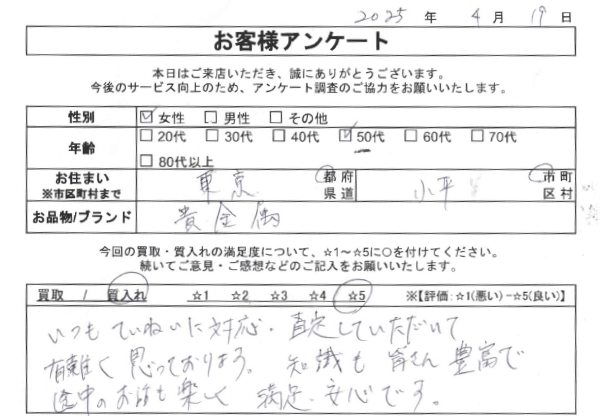 2025 年 4 月 19 日
お客様アンケート
本日はご来店いただき、誠にありがとうございます。
今後のサービス向上のため、アンケート調査のご協力をお願いいたします。
性別 ☑ 女性 □ 男性 □ その他
年齢 □ 20代 □ 30代 □ 40代 ☑ 50代 □ 60代 □ 70代
□ 80代以上
お住まい ※市区町村まで 東京 都府県道 小平 市町区村
お品物/ブランド 貴金属
今回の買取・質入れの満足度について、☆1～☆5に○を付けてください。
続いてご意見・ご感想などのご記入をお願いいたします。
買取 / 質入れ ☆1 ☆2 ☆3 ☆4 ☆5 ※【評価:☆1(悪い)-☆5(良い)】
いつもていねいに対応・査定していただいて
有難く思っております。知識も皆さん豊富で
途中のお話も楽しく 満足、安心です。